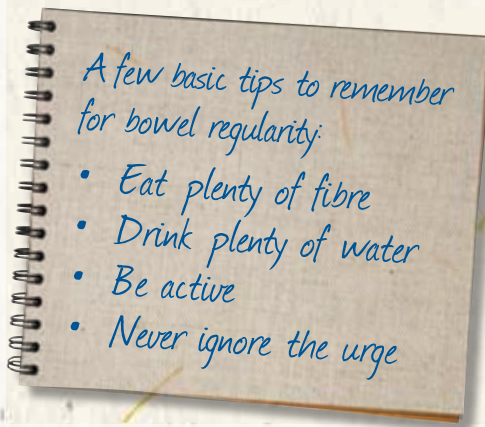 A few basic tips to remember
for bowel regularity:
• Eat plenty of fibre
• Drink plenty of water
• Be active
• Never ignore the urge